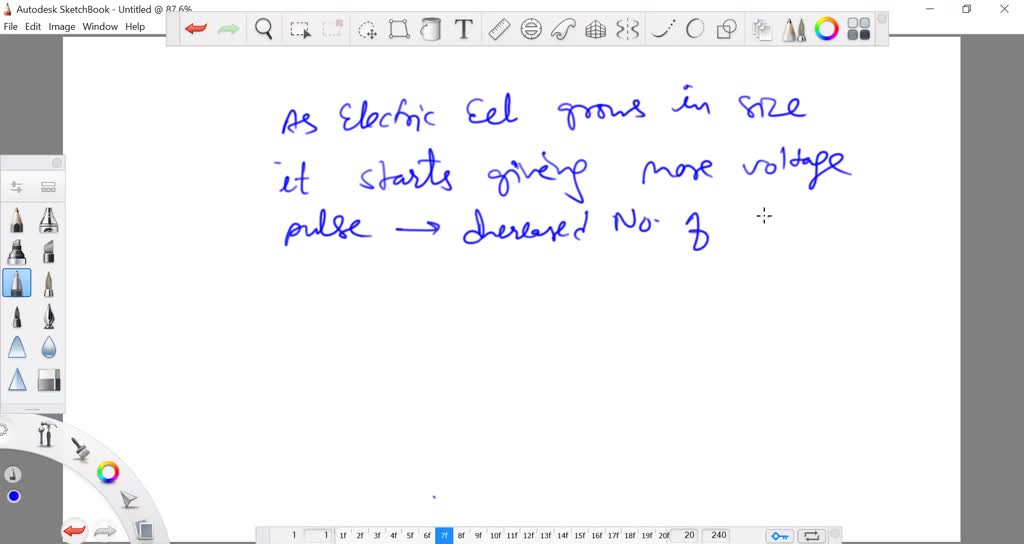 Autodesk SketchBook - Untitled @ 87.6%
File Edit Image Window Help
As Electric Eel grows in size
it starts giving more voltage
pulse → Increased No. of
1 1 1f 2f 3f 4f 5f 6f 7f 8f 9f 10f 11f 12f 13f 14f 15f 16f 17f 18f 19f 20f 20 240